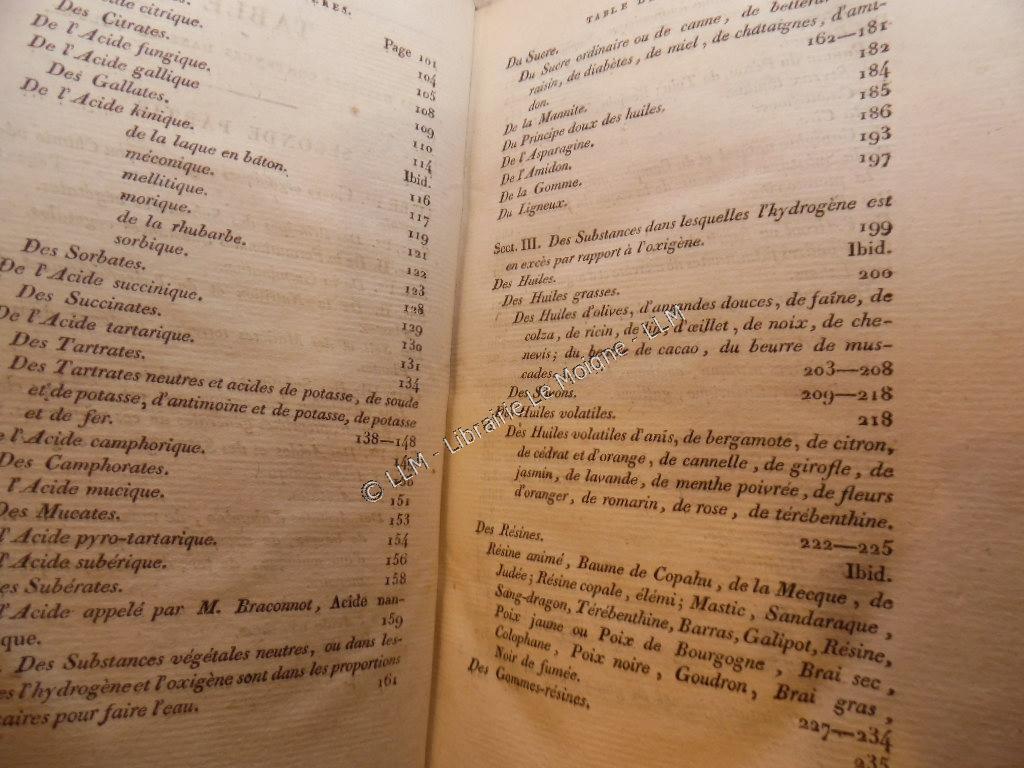 ÈRES.
citrique.
Page 101
Des Citrates.
104
De l'Acide fungique.
105
De l'Acide gallique
108
Des Gallates.
109
De l'Acide kinique.
110
de la laque en bâton.
114
méconique.
Ibid.
mellitique.
116
morique.
117
de la rhubarbe.
119
sorbique.
121
Des Sorbates.
122
De l'Acide succinique.
123
Des Succinates.
128
De l'Acide tartarique.
129
Des Tartrates.
130
131
Des Tartrates neutres et acides de potasse, de soude
134
et de potasse, d'antimoine et de potasse, de potasse
et de fer.
138—148
l'Acide camphorique.
Des Camphorates.
l'Acide mucique.
151
Des Mucates.
153
l'Acide pyro-tartarique.
154
l'Acide subérique.
156
Des Subérates.
158
l'Acide appelé par M. Braconnot, Acide nan-
ique.
159
Des Substances végétales neutres, ou dans les-
l'hydrogène et l'oxigène sont dans les proportions
aires pour faire l'eau.
161
TABLE D
Du Sucre.
Du Sucre ordinaire ou de canne, de bettera
raisin, de diabètes, de miel, de châtaignes, d'ami-
don.
162—181
De la Mannite.
182
Du Principe doux des huiles.
184
De l'Asparagine.
185
De l'Amidon.
186
De la Gomme.
193
Du Ligneux.
197
Sect. III. Des Substances dans lesquelles l'hydrogène est
en excès par rapport à l'oxigène.
199
Des Huiles.
Ibid.
Des Huiles grasses.
200
Des Huiles d'olives, d'amandes douces, de faîne, de
colza, de ricin, de lin, d'œillet, de noix, de che-
nevis; du beurre de cacao, du beurre de mus-
cades.
203—208
Des Savons.
209—218
Huiles volatiles.
218
Des Huiles volatiles d'anis, de bergamote, de citron,
de cédrat et d'orange, de cannelle, de girofle, de
jasmin, de lavande, de menthe poivrée, de fleurs
d'oranger, de romarin, de rose, de térébenthine.
222—225
Des Résines.
Ibid.
Résine animé, Baume de Copahu, de la Mecque, de
Judée; Résine copale, élémi; Mastic, Sandaraque,
Sang-dragon, Térébenthine, Barras, Galipot, Résine,
Poix jaune ou Poix de Bourgogne, Brai sec,
Colophane, Poix noire, Goudron, Brai gras,
Noir de fumée.
227—234
Des Gommes-résines.
235
© LLM - Librairie Le Moigne - LLM